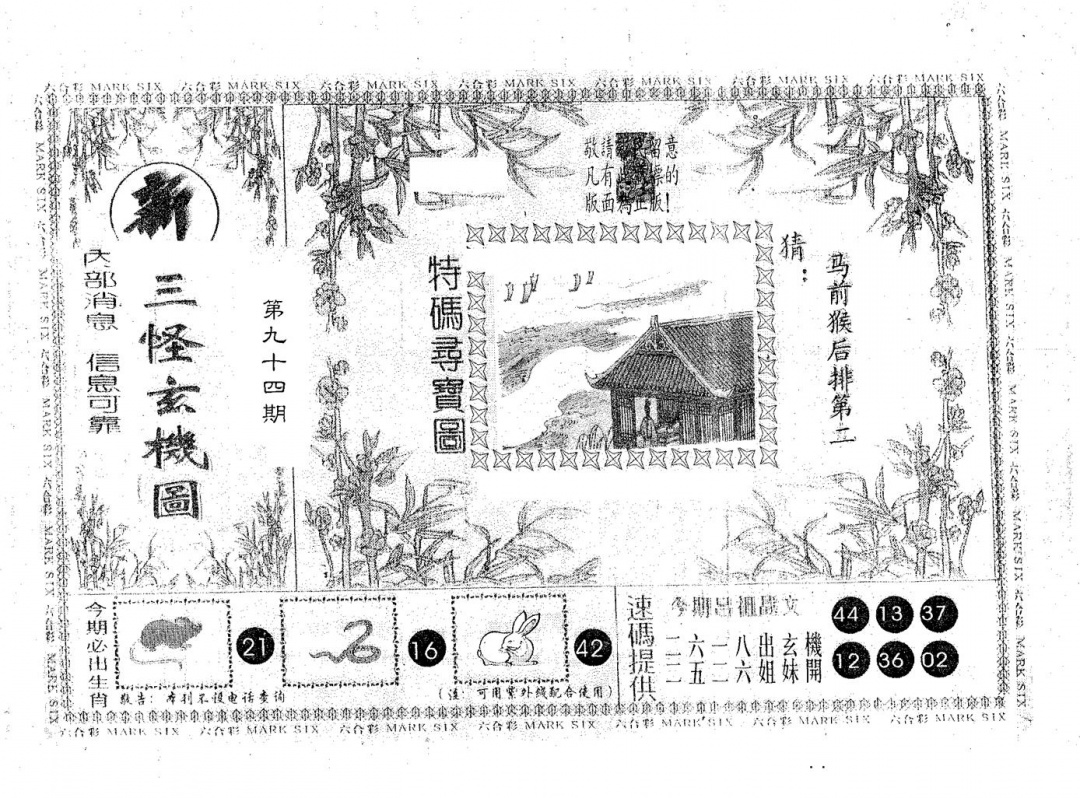 六合彩 MARK SIX 六合彩 MARK SIX 六合彩 MARK SIX 六合彩 MARK SIX 六合彩 MARK SIX 六合彩 MARK SIX 六合彩 MARK SIX
新
三怪玄機圖
内部消息 信息可靠
第九十四期
敬請 留意
凡有 的
版面為正版!
特碼尋寶圖
猜:
马前猴后排第二
今期必出生肖
21
16
42
敬告:本刊不设电话查询
(注:可用紫外线配合使用)
速碼提供
今期呂祖 文
二六一八出玄機
二五二六姐妹開
44 13 37
12 36 02
六合彩 MARK SIX 六合彩 MARK SIX 六合彩 MARK SIX 六合彩 MARK SIX 六合彩 MARK SIX 六合彩 MARK SIX 六合彩 MARK SIX